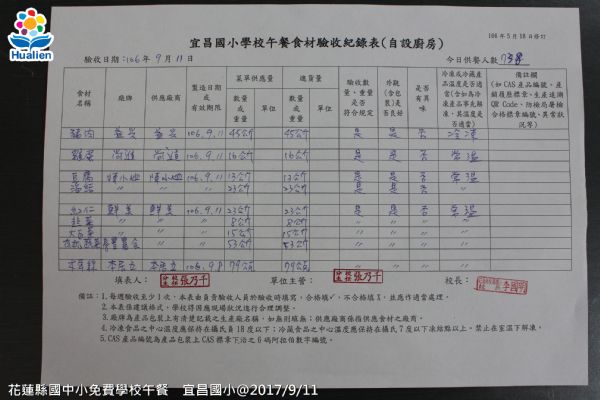 Hualien
106年5月18日修訂
宜昌國小學校午餐食材驗收紀錄表(自設廚房)
驗收日期：106年9月11日
今日供餐人數
食材名稱 廠牌 供應廠商 製造日期或有效期限 菜單供應量 數量或重量 單位 進貨量 數量或重量 單位 驗收數量、重量是否符合規定 外觀(含包裝)是否良好 是否有異味 冷凍或冷藏產品溫度是否適合(含如為冷凍產品事先解凍，其溫度是否適當) 備註欄(如CAS產品編號、產銷履歷標章、生產追溯QR Code、防檢局屠檢合格標章編號、異常狀況等)
豬肉 106.9.11 45公斤 45公斤 是 是 否 冷凍
雞蛋 106.9.11 16公斤 16公斤 是 是 否 常溫
豆腐 106.9.11 13公斤 13公斤 是 是 否 常溫
〃 〃 〃 23公斤 23公斤 是 是 否 〃
鮮美 鮮美 106.9.11 23公斤 23公斤 是 是 否 常溫
韭菜 〃 〃 〃 8公斤 8公斤 〃 〃 〃 〃
〃 〃 〃 15公斤 15公斤 〃 〃 〃 〃
〃 53公斤 53公斤 〃 〃 〃 〃
106.9.8 79公斤 79公斤 〃 〃 〃 〃
填表人： 張乃千 單位主管： 張乃千 校長： 李國明
備註：1.每週驗收至少1次，本表由負責驗收人員於驗收時填寫，合格填✓，不合格填X，並應作適當處理。
2.本表係建議格式，學校得因應現場狀況進行合理調整。
3.廠牌為產品包裝上有清楚記載之生產廠名稱，如無則填無；供應廠商係指供應食材之廠商。
4.冷凍食品之中心溫度應保持在攝氏負18度以下；冷藏食品之中心溫度應保持在攝氏7度以下凍結點以上。禁止在室溫下解凍。
5.CAS產品編號為產品包裝上CAS標章下沿之6碼阿拉伯數字編號。
花蓮縣國中小免費學校午餐 宜昌國小@2017/9/11